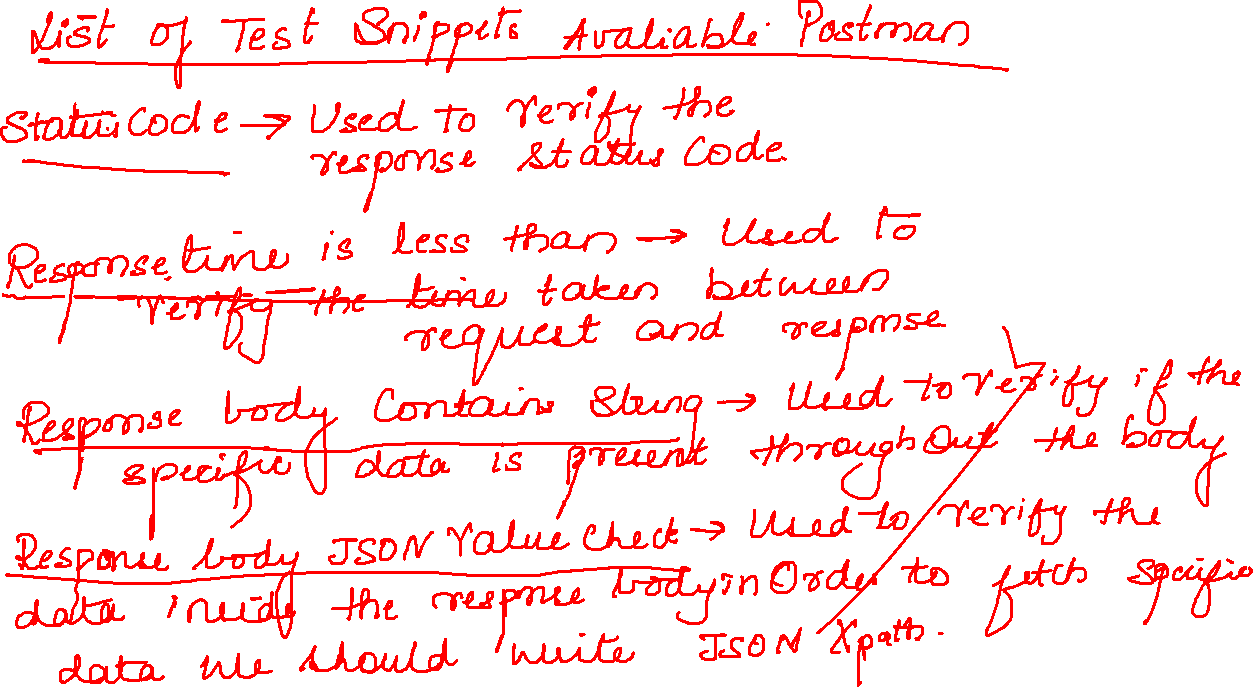 List of Test Snippets Avaliable Postman
Status Code → Used to verify the
response status code
Response time is less than → Used to
verify the time taken between
request and response
Response body Contains String → Used to verify if the
specific data is present throughout the body
Response body JSON Value Check → Used to verify the
data inside the response body in Order to fetch Specific
data we should write JSON Xpath.